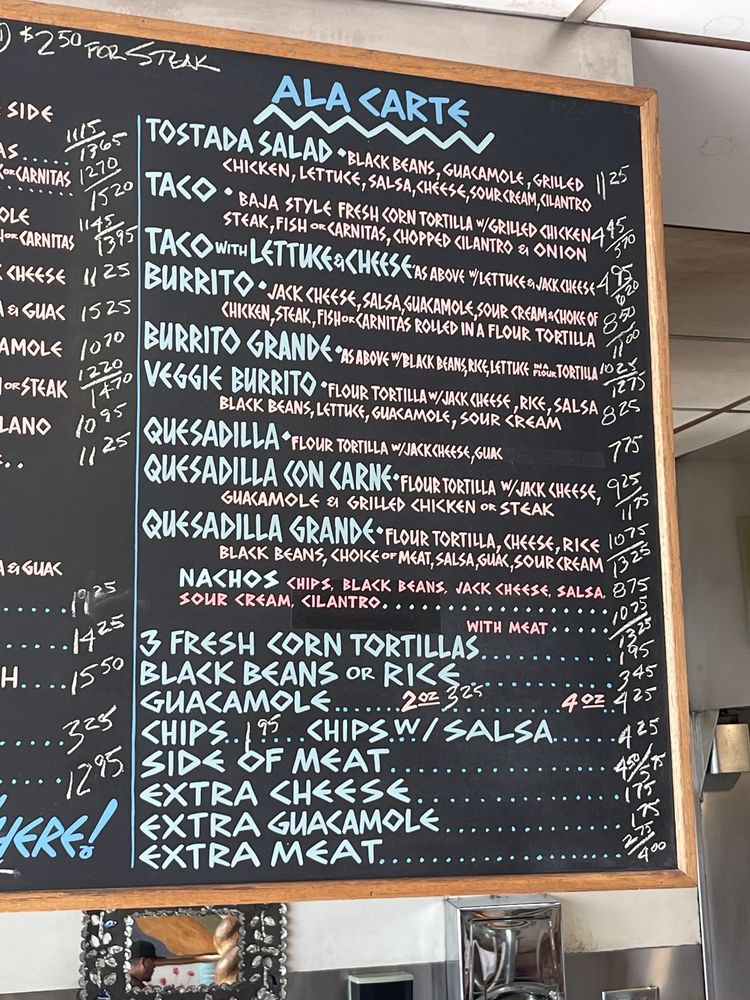 ) $2.50 FOR STEAK
SIDE
11 15
13 65
12 70
OR CARNITAS
15 20
11 45
OR CARNITAS
13 95
CHEESE 11 25
& GUAC 15 25
AMOLE 10 70
12 20
OR STEAK
14 70
LANO 10 95
11 25
A & GUAC
14 25
H.....15 50
3 25
12 95
HERE!
ALA CARTE
TOSTADA SALAD • BLACK BEANS, GUACAMOLE, GRILLED
CHICKEN, LETTUCE, SALSA, CHEESE, SOUR CREAM, CILANTRO 11 25
TACO • BAJA STYLE FRESH CORN TORTILLA W/GRILLED CHICKEN 4 45
STEAK, FISH OR CARNITAS, CHOPPED CILANTRO & ONION 5 70
TACO WITH LETTUCE & CHEESE • AS ABOVE W/LETTUCE & JACK CHEESE 4 95
BURRITO • JACK CHEESE, SALSA, GUACAMOLE, SOUR CREAM & CHOICE OF
CHICKEN, STEAK, FISH OR CARNITAS ROLLED IN A FLOUR TORTILLA 8 50
11 00
BURRITO GRANDE • AS ABOVE W/BLACK BEANS, RICE, LETTUCE IN A FLOUR TORTILLA 10 25
12 75
VEGGIE BURRITO • FLOUR TORTILLA W/JACK CHEESE, RICE, SALSA
BLACK BEANS, LETTUCE, GUACAMOLE, SOUR CREAM 8 25
QUESADILLA • FLOUR TORTILLA W/JACK CHEESE, GUAC 7 75
QUESADILLA CON CARNE • FLOUR TORTILLA W/JACK CHEESE, 9 25
GUACAMOLE & GRILLED CHICKEN OR STEAK 11 75
QUESADILLA GRANDE • FLOUR TORTILLA, CHEESE, RICE 10 75
BLACK BEANS, CHOICE OF MEAT, SALSA, GUAC, SOUR CREAM 13 25
NACHOS CHIPS, BLACK BEANS, JACK CHEESE, SALSA, 8 75
SOUR CREAM, CILANTRO........ 10 75
WITH MEAT ..... 13 25
3 FRESH CORN TORTILLAS........ 1 95
BLACK BEANS OR RICE........ 3 45
GUACAMOLE..... 2 OZ 3 25 4 OZ 4 25
CHIPS.. 1 95 CHIPS W/ SALSA..... 4 25
SIDE OF MEAT........ 4 50/5 75
EXTRA CHEESE........ 1 75
EXTRA GUACAMOLE........ 1 75
EXTRA MEAT........ 2 75/4 00